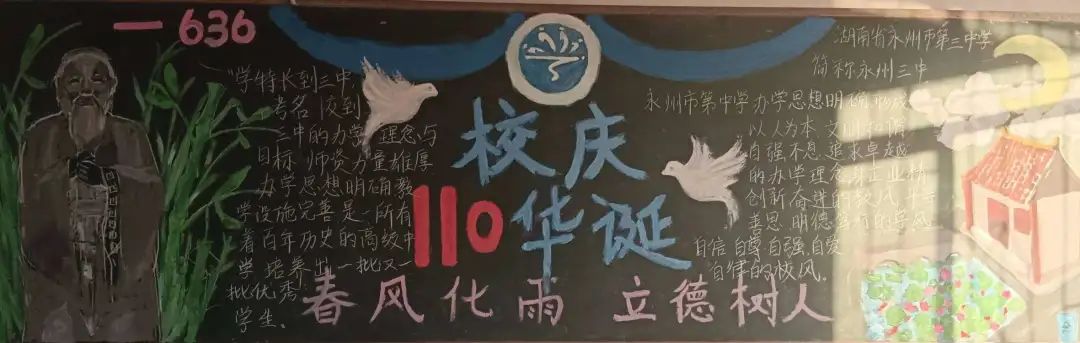 一636
"学特长到三中
考名校到
三中的办学理念与
目标 师资力量雄厚
办学思想明确教
学设施完善是一所有
着百年历史的高级中
学 培养出一批又一
批优秀
学生.
校庆
110华诞
春风化雨 立德树人
湖南省永州市第三中学
简称永州三中
永州市第中学办学思想明确
以人为本
自强不息 追求卓越
的办学理念
创新奋进的教风
善思 明德 的学风
自信 自尊 自强 自爱
自律的校风.